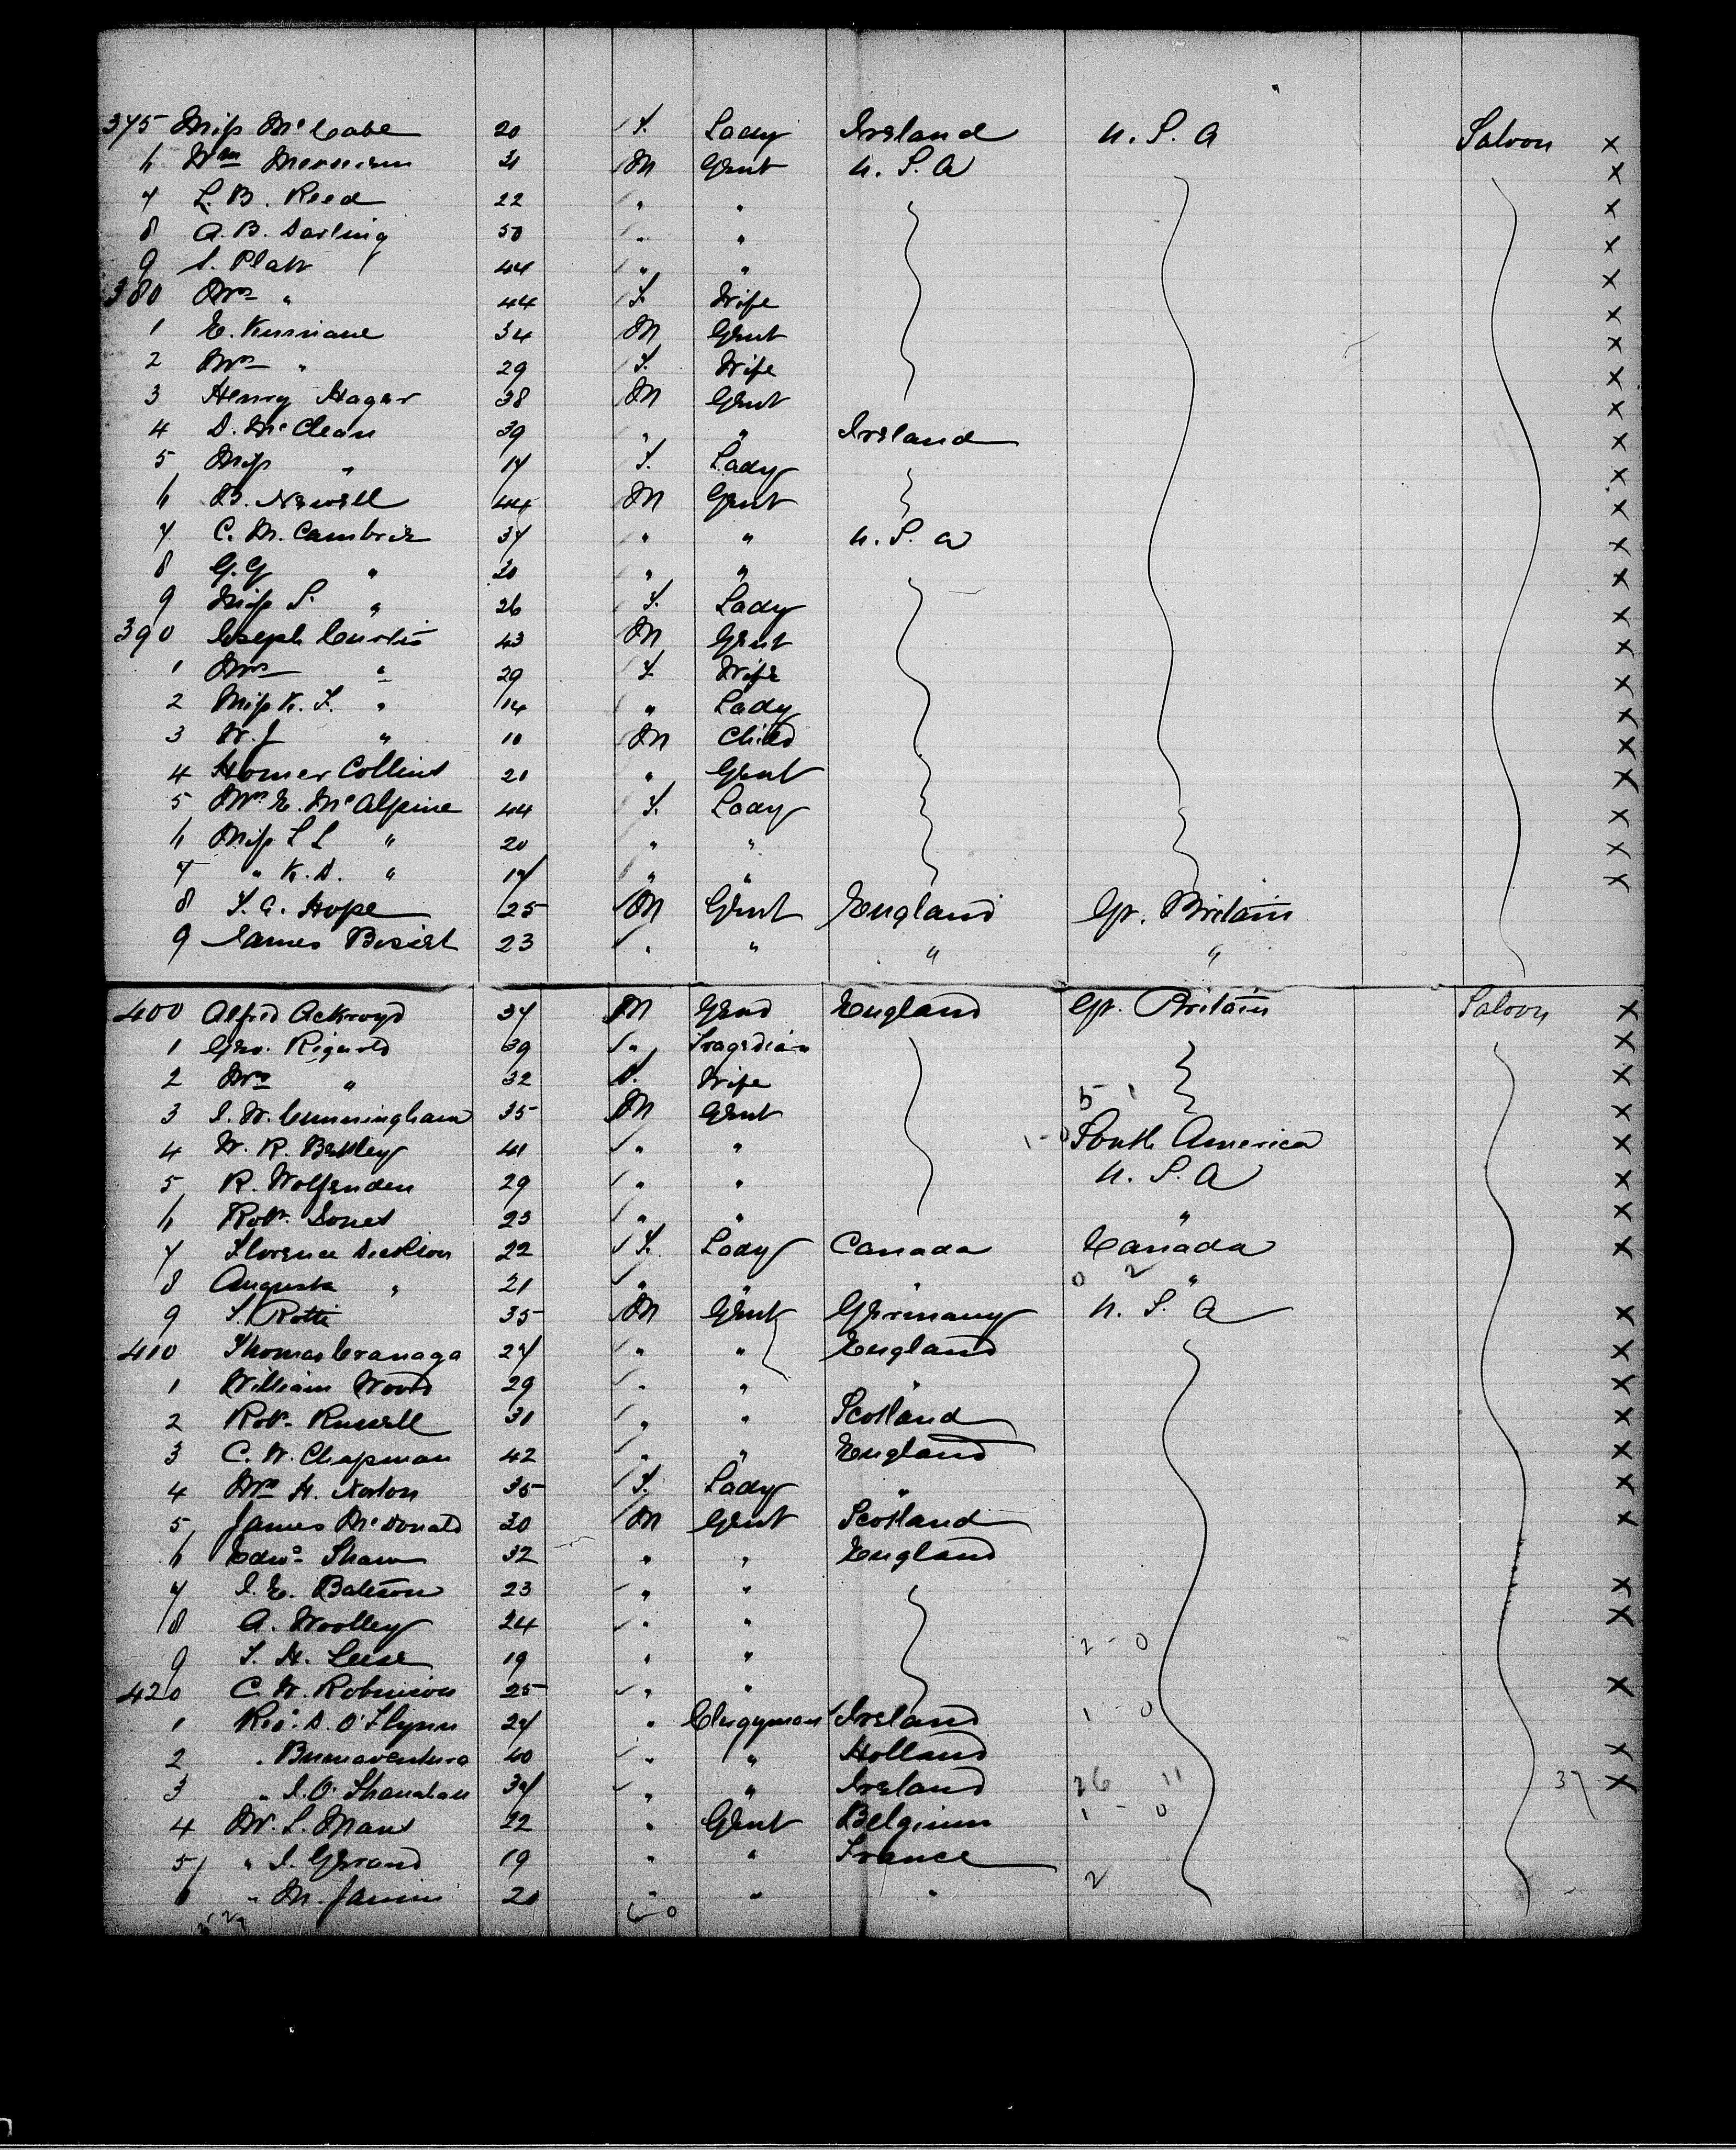 375 Miss McCabe 20 F. Lady Ireland U. S. A Saloon x
6 Wm 31 M Gent U. S. A x
7 L. B. Reed 22 " " x
8 A. B. Darling 50 " " x
9 S. Platt 44 " " x
380 Mrs " 44 F. Wife x
1 E. 34 M Gent x
2 Mrs " 29 F. Wife x
3 Henry Hager 38 M Gent x
4 D. McClean 39 " " Ireland x
5 Miss " 17 F. Lady x
6 B. Newell 44 M Gent x
7 C. M. 37 " " U. S. A x
8 G. G " 20 " " x
9 Miss S. " 26 F. Lady x
390 Joseph Curtis 43 M Gent x
1 Mrs " 29 F Wife x
2 Miss K. F. " 14 " Lady x
3 W. J " 10 M Child x
4 Homer Collins 21 " Gent x
5 Mrs E. McAlpine 44 F. Lady x
6 Miss L L " 20 " " x
7 " K. D. " 17 " " x
8 F. A. Hope 25 M Gent England Gr. Britain
9 James 23 " " " "
400 Alfred Ackroyd 37 M Gend England Gr. Britain Saloon x
1 Geo. Rignold 39 " Tragedian x
2 Mrs " 32 F. Wife x
3 J. W. Cunningham 35 M Gent 5 1 x
4 W. R. 41 " " 1-0 South America x
5 R. Wolfenden 29 " " U. S. A x
6 Robt. Jones 23 " " " x
7 Florence 22 F. Lady Canada Canada x
8 Augusta " 21 " " " 0 2 "
9 35 M Gent Germany U. S. A x
410 Thomas Cranaga 27 " " England x
1 William Wood 29 " " " x
2 Robt. Russell 31 " " Scotland x
3 C. W. Chapman 42 " " England x
4 Mrs H. Norton 35 F. Lady " x
5 James McDonald 30 M Gent Scotland x
6 Edwd Shaw 32 " " England
7 J. E. Bateson 23 " " x
8 A. Woolley 24 " " x
9 19 " " 2 - 0
420 C. W. Robinson 25 " " x
1 Revd. D. O'Flynn 27 " Clergyman Ireland 1 - 0
2 " Buenaventura 40 " " Holland x
3 " J. O. Shanahan 37 " " Ireland 26 11 37 x
4 Mr. L. 22 " Gent Belgium 1 - 0
5 " J. 19 " " France
6 " M. 20 " " " 2
6-0